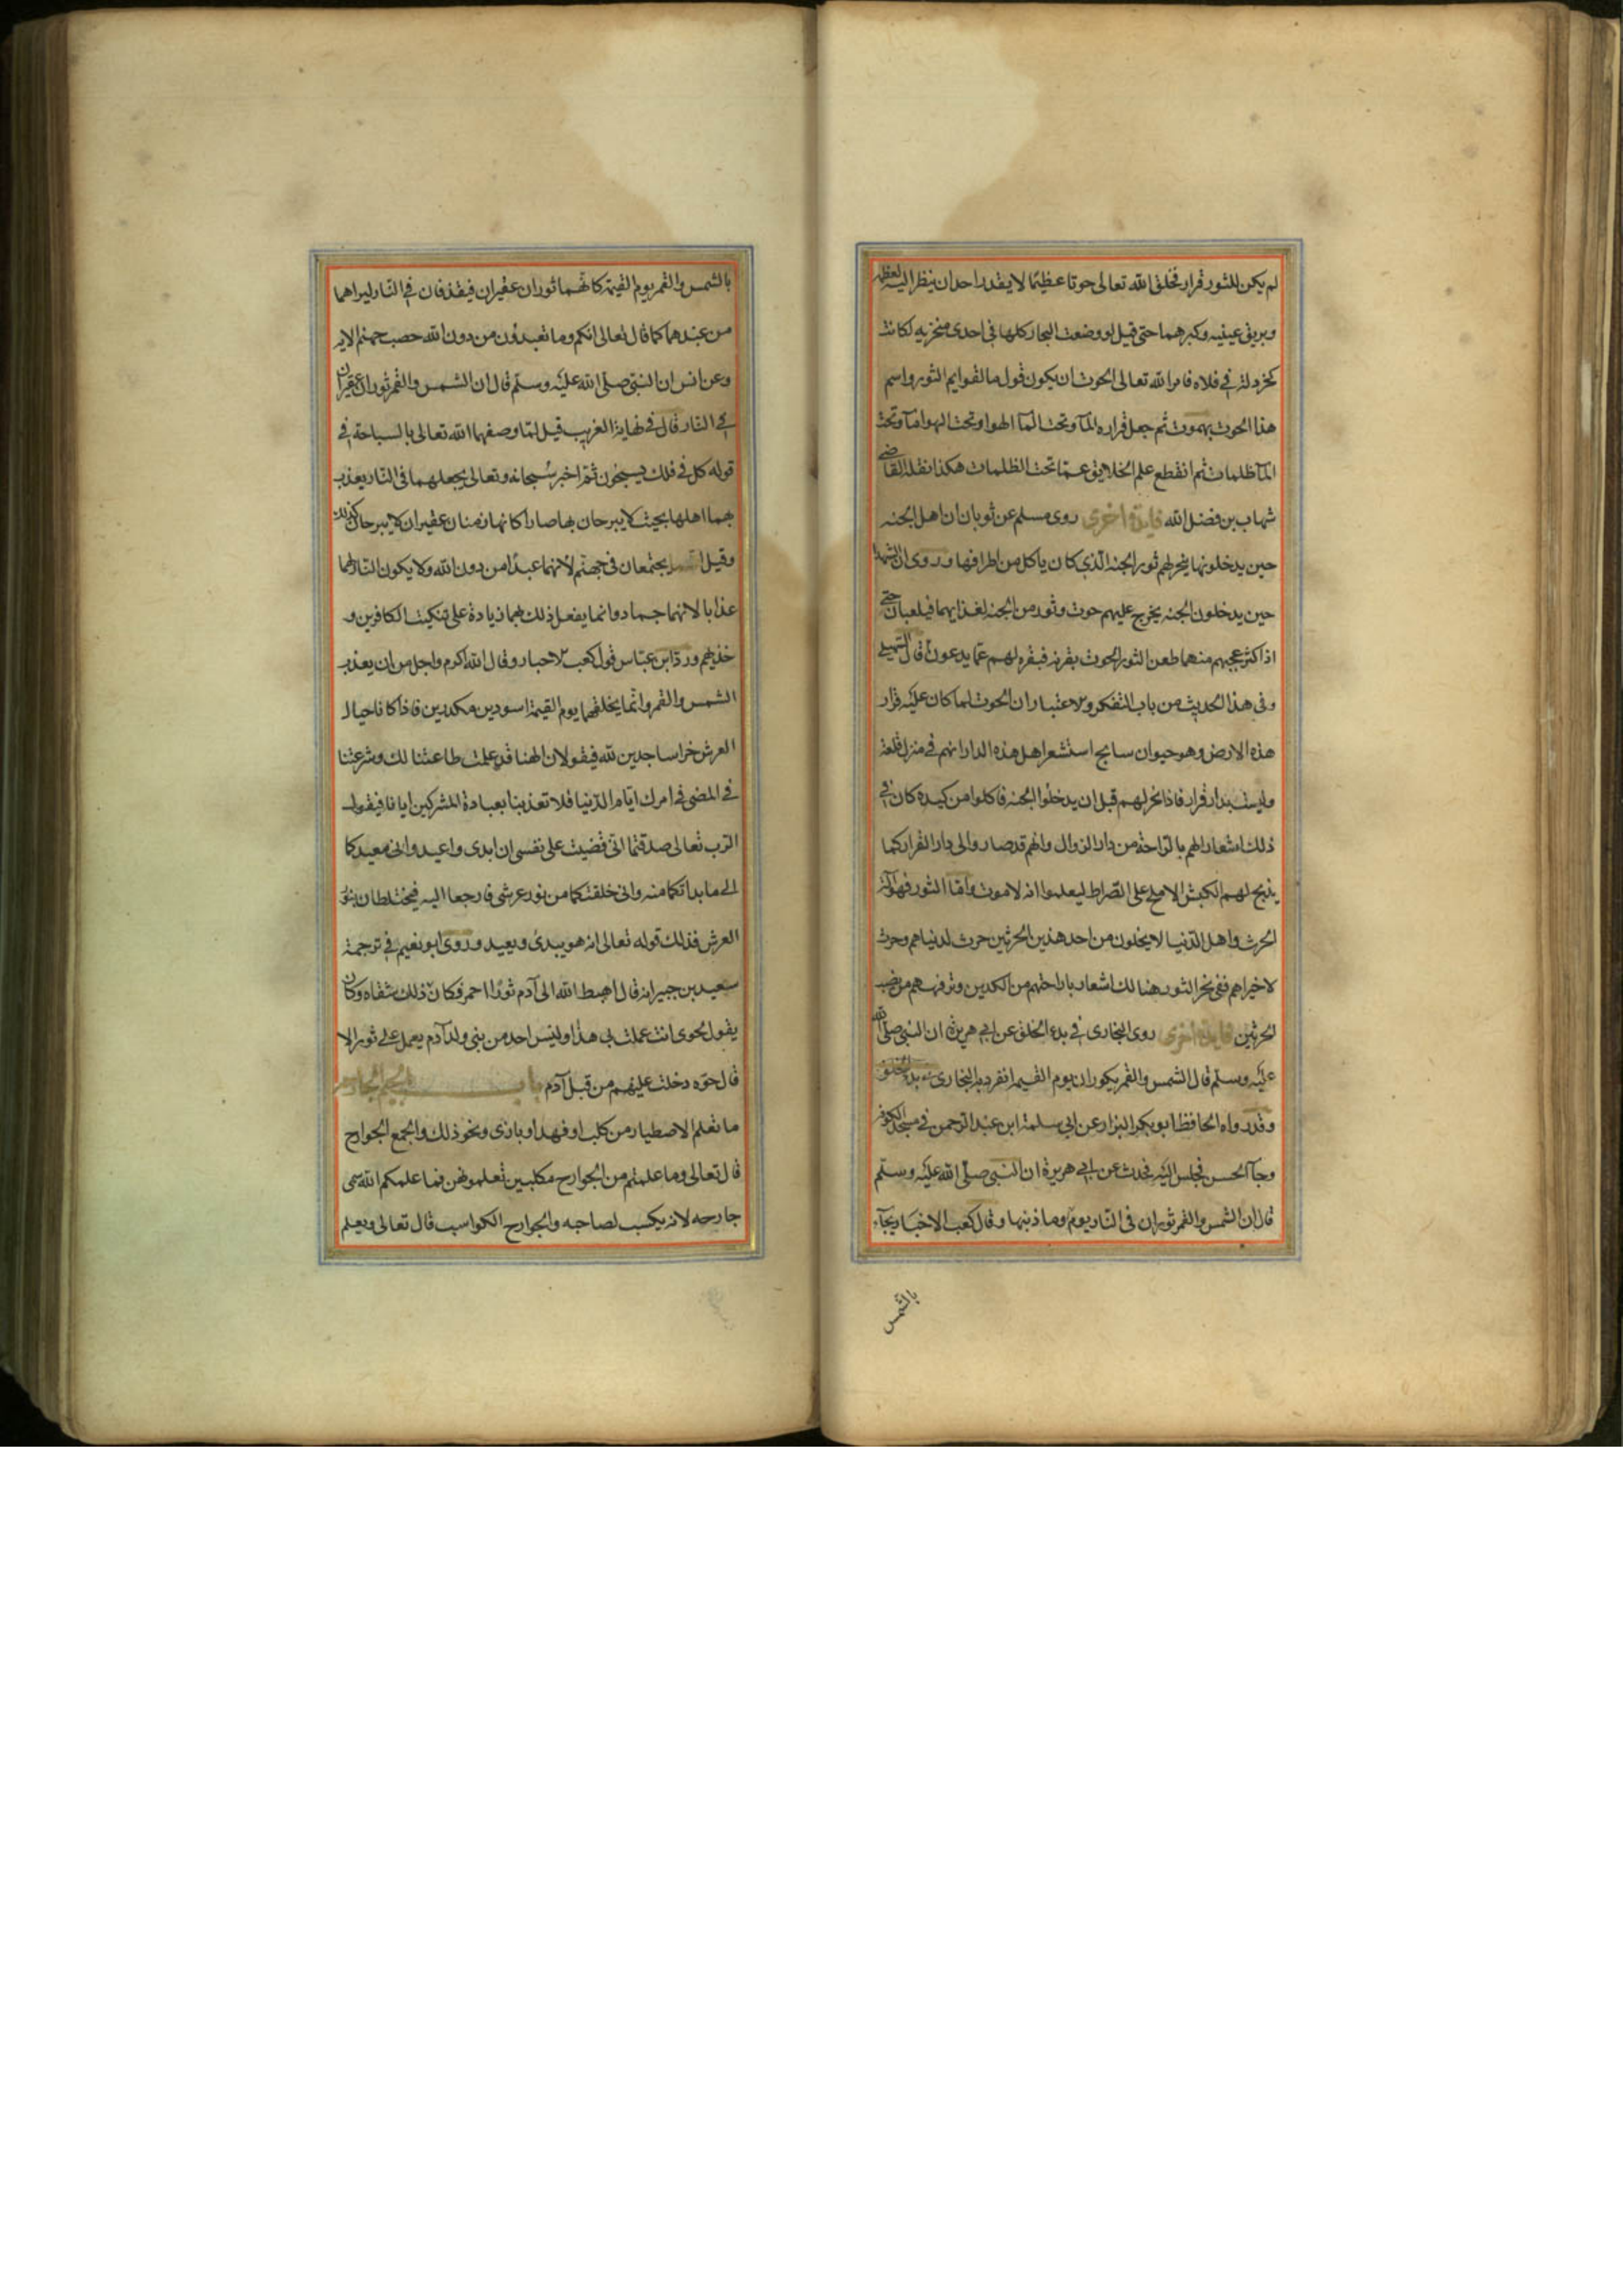 لم يكن للثور قرار فخلق الله تعالى حوتا عظيما لا يقدر احد ان ينظر اليه لعظمه
وبريق عينيه وكبرهما حتى قيل لو وضعت البحار كلها في احدى منخريه لكانت
كخردلة في فلاه فامر الله تعالى الحوت ان يكون قول ما لقوايم الثور واسم
هذا الحوت بهموت ثم جعل قراره المآ وتحت المآ الهوا وتحت الهوا مآ وتحت
المآ ظلمات ثم انقطع علم الخلايق عما تحت الظلمات هكذا نقله القاضي
شهاب بن فضل الله فايدة اخرى روى مسلم عن ثوبان ان اهل الجنه
حين يدخلونها ينحر لهم ثور الجنه الذي كان ياكل من اطرافها وروى ان الشهدا
حين يدخلون الجنه يخرج عليهم حوت وثور من الجنه لغذايهما فيلعبان حتى
اذا كثر عجبهم منهما طعن الثور الحوت بقرنه فبقره لهم عما يدعون قال السهيلي
وفي هذا الحديث من باب التفكر والاعتبار ان الحوت لما كان عليه قرار
هذه الارض وهو حيوان سابح استشعر اهل هذه الدار انهم في منزل قلعة
وليست بدار قرار فاذا نحر لهم قبل ان يدخلوا الجنه فاكلوا من كبده كان في
ذلك اشعار لهم بالراحة من دار الزوال وانهم قد صاروا الى دار القرار كما
يذبح لهم الكبش الاملح على الصراط ليعلموا انه لا موت واما الثور فهو آلة
الحرث واهل الدنيا لا يخلون من احد هذين الحرثين حرث لدنياهم وحرث
لاخراهم ففي نحر الثور هنالك اشعار باراحتهم من الكدين وترفيههم من نصب
الحرثين فايدة اخرى روى البخارى في بدء الخلق عن ابي هريرة ان النبي صلى الله
عليه وسلم قال الشمس والقمر يكوران يوم القيمه انفرد به البخارى بدء الخلق
وقد رواه الحافظ ابو بكر البزار عن ابي سلمة ابن عبد الرحمن في مسجد الكوفه
وجآ الحسن فجلس اليه فحدث عن ابي هريرة ان النبى صلى الله عليه وسلم
قال ان الشمس والقمر ثوران في النار يوم وما ذنبهما وقال كعب الاحبار يجآء
بالشمس
بالشمس والقمر يوم القيمة كانهما ثوران عقيران فيقذفان في النار ليراهما
من عبدهما كما قال تعالى انكم وما تعبدون من دون الله حصب جهنم الايه
وعن انس ان النبى صلى الله عليه وسلم قال ان الشمس والقمر ثوران عقيران
في النار قال في نهاية الغريب قيل لما وصفهما الله تعالى بالسباحة في
قوله كل في فلك يسبحون ثم اخبر سبحانه وتعالى يجعلهما في النار يعذب
بهما اهلها بحيث لا يبرحان بها صارا كانهما زمنان عقيران لا يبرحان كذلك
وقيل يجتمعان في جهنم لانهما عبدا من دون الله ولا يكون النار لهما
عذابا لانهما جماد وانما يفعل ذلك بهما زيادة على تنكيت الكافرين و
خذيهم ورد ابن عباس قول كعب الاحبار وقال الله اكرم واجل من ان يعذب
الشمس والقمر وانما يخلقهما يوم القيمة اسودين مكدرين فاذا كانا حيال
العرش خرا ساجدين لله فيقولان الهنا قد علمت طاعتنا لك وشرعتنا
في المضى في امرك ايام الدنيا فلا تعذبنا بعبادة المشركين ايانا فيقول
الرب تعالى صدقتما اني قضيت على نفسى ان ابدى واعيد واني معيدكما
الى ما بداتكما منه واني خلقتكما من نور عرشى فارجعا اليه فيختلطان بنور
العرش فذلك قوله تعالى انه هو يبدئ ويعيد وروى ابو نعيم في ترجمة
سعيد بن جبير انه قال اهبط الله الى آدم ثورا احمر فكان ذلك شقاه وكان
يقول لحوى انت عملت بي هذا وليس احد من بني ولد آدم يعمل على ثور الا
قال حوه دخلت عليهم من قبل آدم باب الجيم الجارح
ما تعلم الاصطياد من كلب او فهد او بازى ونحو ذلك والجمع الجوارح
قال تعالى وما علمتم من الجوارح مكلبين تعلمونهن مما علمكم الله سمى
جارحه لانه يكسب لصاحبه والجوارح الكواسب قال تعالى ويعلم